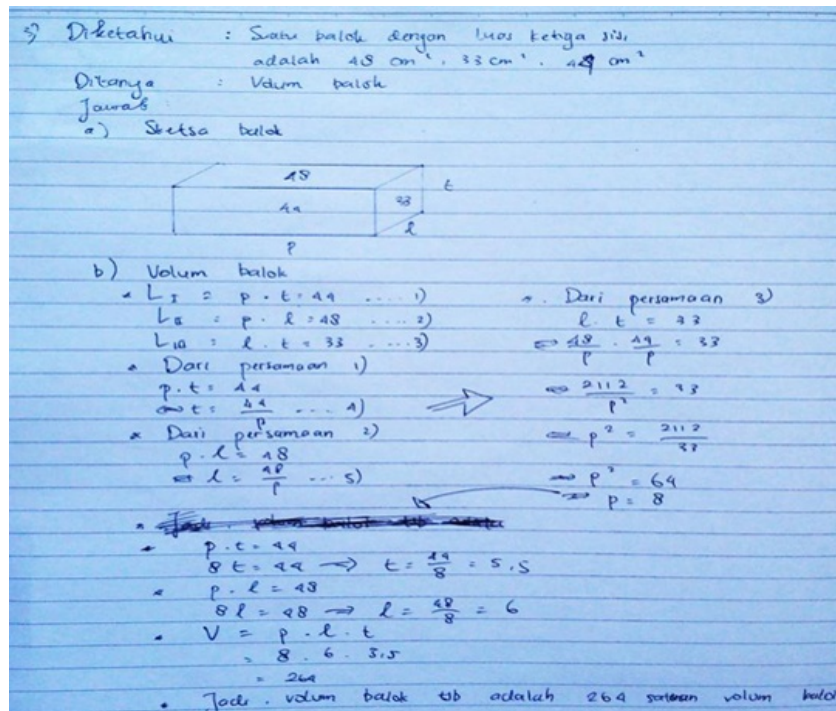 3) Diketahui : Suatu balok dengan luas ketiga sisi
adalah 48 cm², 33 cm², 44 cm²
Ditanya : Volum balok
Jawab
a) Sketsa balok
48
t
44
33
l
p
b) Volum balok
L I = p . t = 44 .... 1)
p . l = 48 .... 2)
l . t = 33 .... 3)
* Dari persamaan 1)
p . t = 44
⇔ t = 44/p .... 4)
* Dari persamaan 2)
p . l = 48
⇔ l = 48/p ... 5)
* Dari persamaan 3)
l . t = 33
⇔ 48/p . 44/p = 33
⇔ 2112/p² = 33
⇔ p² = 2112/33
⇔ p² = 64
⇔ p = 8
* p . t = 44
8 t = 44 → t = 44/8 = 5,5
* p . l = 48
8 l = 48 → l = 48/8 = 6
* V = p . l . t
= 8 . 6 . 5,5
= 264
* Jadi, volum balok tsb adalah 264 satuan volum balok